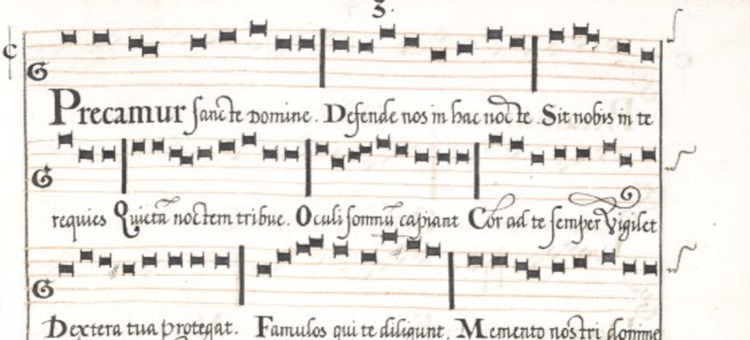 g.
C
G
Precamur sancte domine. Defende nos in hac nocte. Sit nobis in te
G
requies Quietã noctem tribue. Oculi somnũ capiant Cor ad te semper Vigilet
G
Dextera tua protegat. Famulos qui te diligunt. Memento nostri domine